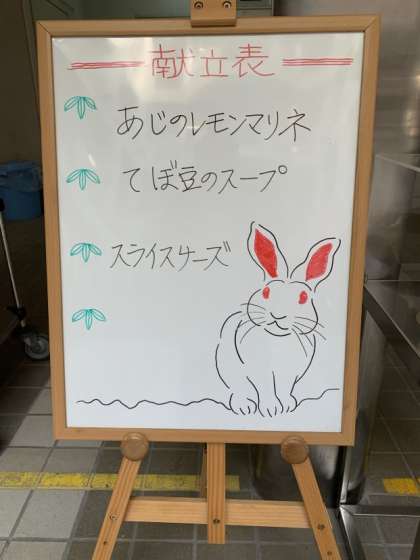 献立表
あじのレモンマリネ
てぼ豆のスープ
スライスチーズ